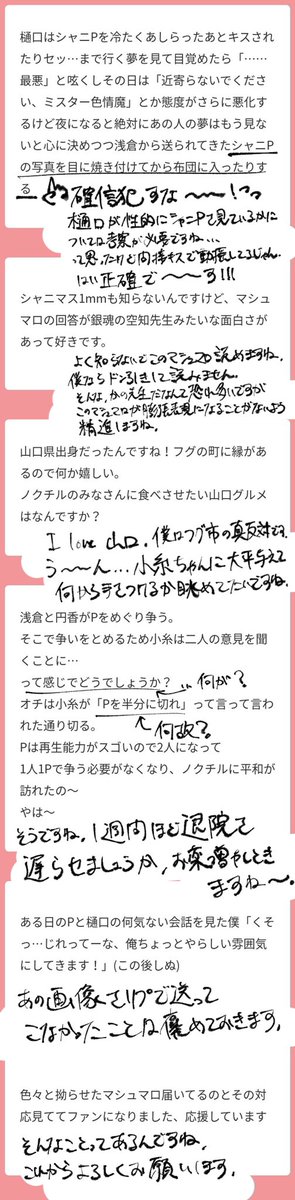 樋口はシャニPを冷たくあしらったあとキスされ
たりセッ…まで行く夢を見て目覚めたら「……
最悪」と呟くしその日は「近寄らないでくださ
い、ミスター色情魔」とか態度がさらに悪化す
るけど夜になると絶対にあの人の夢はもう見な
いと心に決めつつ浅倉から送られてきたシャニP
の写真を目に焼き付けてから布団に入ったりす
る
確信犯すな〜〜!っっ
樋口が性的にシャニPで見ているかに
ついては考察が必要ですね…
って思ったけど間接キスで動揺してるじゃん
はい正確で〜〜す!!!
シャニマス1mmも知らないんですけど、マシュ
マロの回答が銀魂の空知先生みたいな面白さが
あって好きです。
よく知らないでこのマシュマロ読めますね。
僕ならドン引きして読みません。
そんな、かの先生だなんて恐れ多いですが
このマシュマロが膨張表現になることがないよう
精進しますね。
山口県出身だったんですね！フグの町に縁があ
るので何か嬉しい。
ノクチルのみなさんに食べさせたい山口グルメ
はなんですか？
I love 山口。僕はフグ市の真反対です。
う〜〜ん…小糸ちゃんに大平与えて
何から手をつけるか眺めてたいですね。
浅倉と円香がPをめぐり争う。
そこで争いをとめるため小糸は二人の意見を聞
くことに…
って感じでどうでしょうか？
何が?
オチは小糸が「Pを半分に切れ」って言って言わ
れた通り切る。
何故?
Pは再生能力がスゴいので2人になって
1人1Pで争う必要がなくなり、ノクチルに平和が
訪れたの〜
やは〜
そうですね、1週間ほど退院を
遅らせましょうか、お薬増やしとき
ますね〜。
ある日のPと樋口の何気ない会話を見た僕「くそ
っ…じれってーな、俺ちょっとやらしい雰囲気
にしてきます！」(この後しぬ)
あの画像きりpで送って
こなかったことは褒めておきます。
色々と拗らせたマシュマロ届いてるのとその対
応見ててファンになりました、応援しています
そんなことってあるんですね。
これからよろしくお願いします。